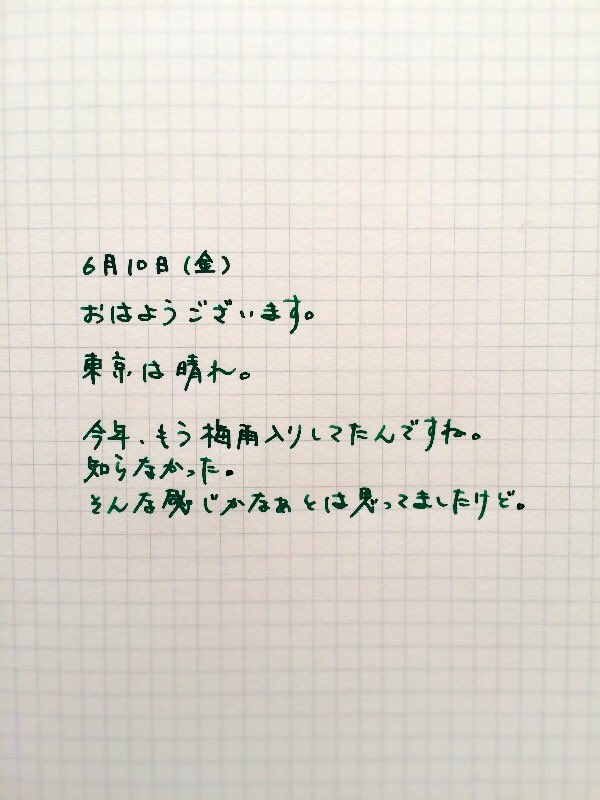 6月10日(金)
おはようございます。
東京は晴れ。
今年、もう梅雨入りしてたんですね。
知らなかった。
そんな感じかなぁとは思ってましたけど。